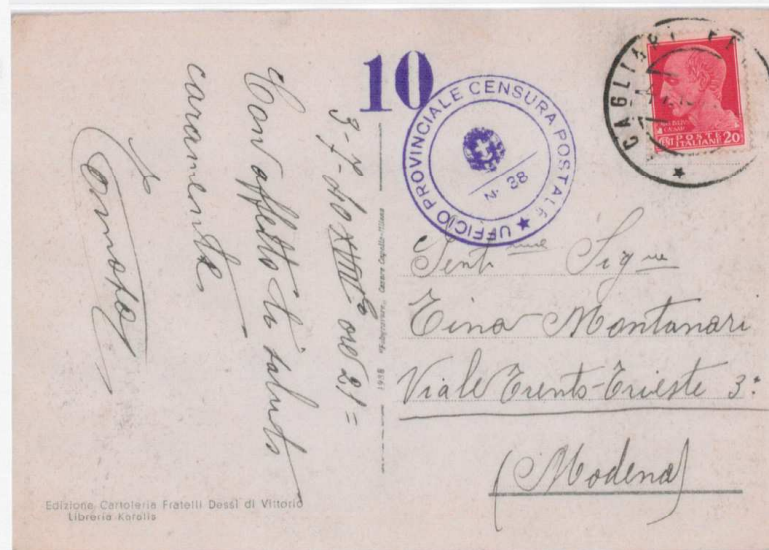 10
UFFICIO PROVINCIALE CENSURA POSTALE
N. 38
CAGLIARI
POSTE
ITALIANE 20
3-7-40 XVIII° ore 21=
Con affetto ti saluto
caramente
Gent ma Sig na
Tina Montanari
Viale Trento-Trieste 3:
(Modena)
1938
Edizione Cartoleria Fratelli Dessì di Vittorio
Libreria Karalis